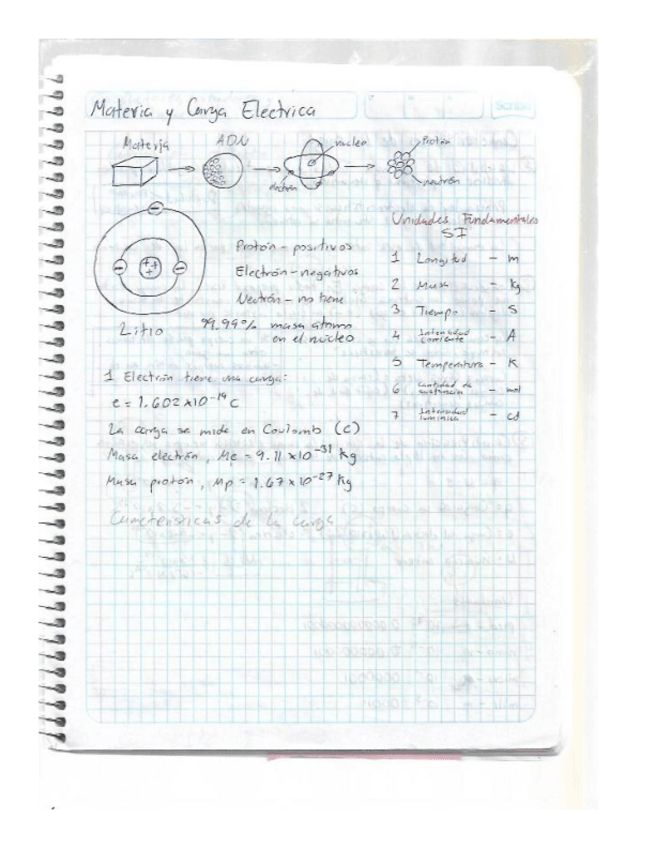 Materia y Carga Electrica
Materia
ADN
nucleo
electrón
Protón
neutrón
Protón - positivos
Electrón - negativos
Neutrón - no tiene
99.99% masa átomo
en el núcleo
Litio
Unidades Fundamentales
SI
1 Longitud - m
2 Masa - kg
3 Tiempo - s
4 Intensidad corriente - A
5 Temperatura - K
6 Cantidad de sustancia - mol
7 Intensidad luminica - cd
1 Electrón tiene una carga:
e = 1.602 x10⁻¹⁹ C
La carga se mide en Coulomb (C)
Masa electrón, Me = 9.11 x10⁻³¹ kg
Masa protón, Mp = 1.67 x10⁻²⁷ kg
Características de la carga